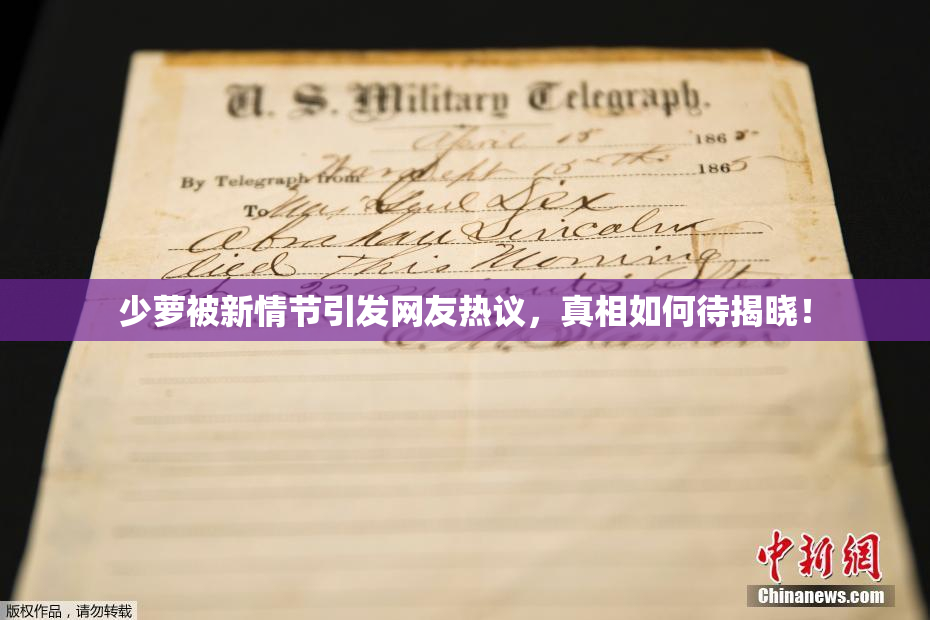 U. S. Military Telegraph.
April 15 1865
By Telegraph from War Dept 15th 1865
To Maj Genl Dix
Abraham Lincoln
died This Morning
at 22 minutes after
少萝被新情节引发网友热议，真相如何待揭晓！
中新網
Chinanews.com
版权作品，请勿转载